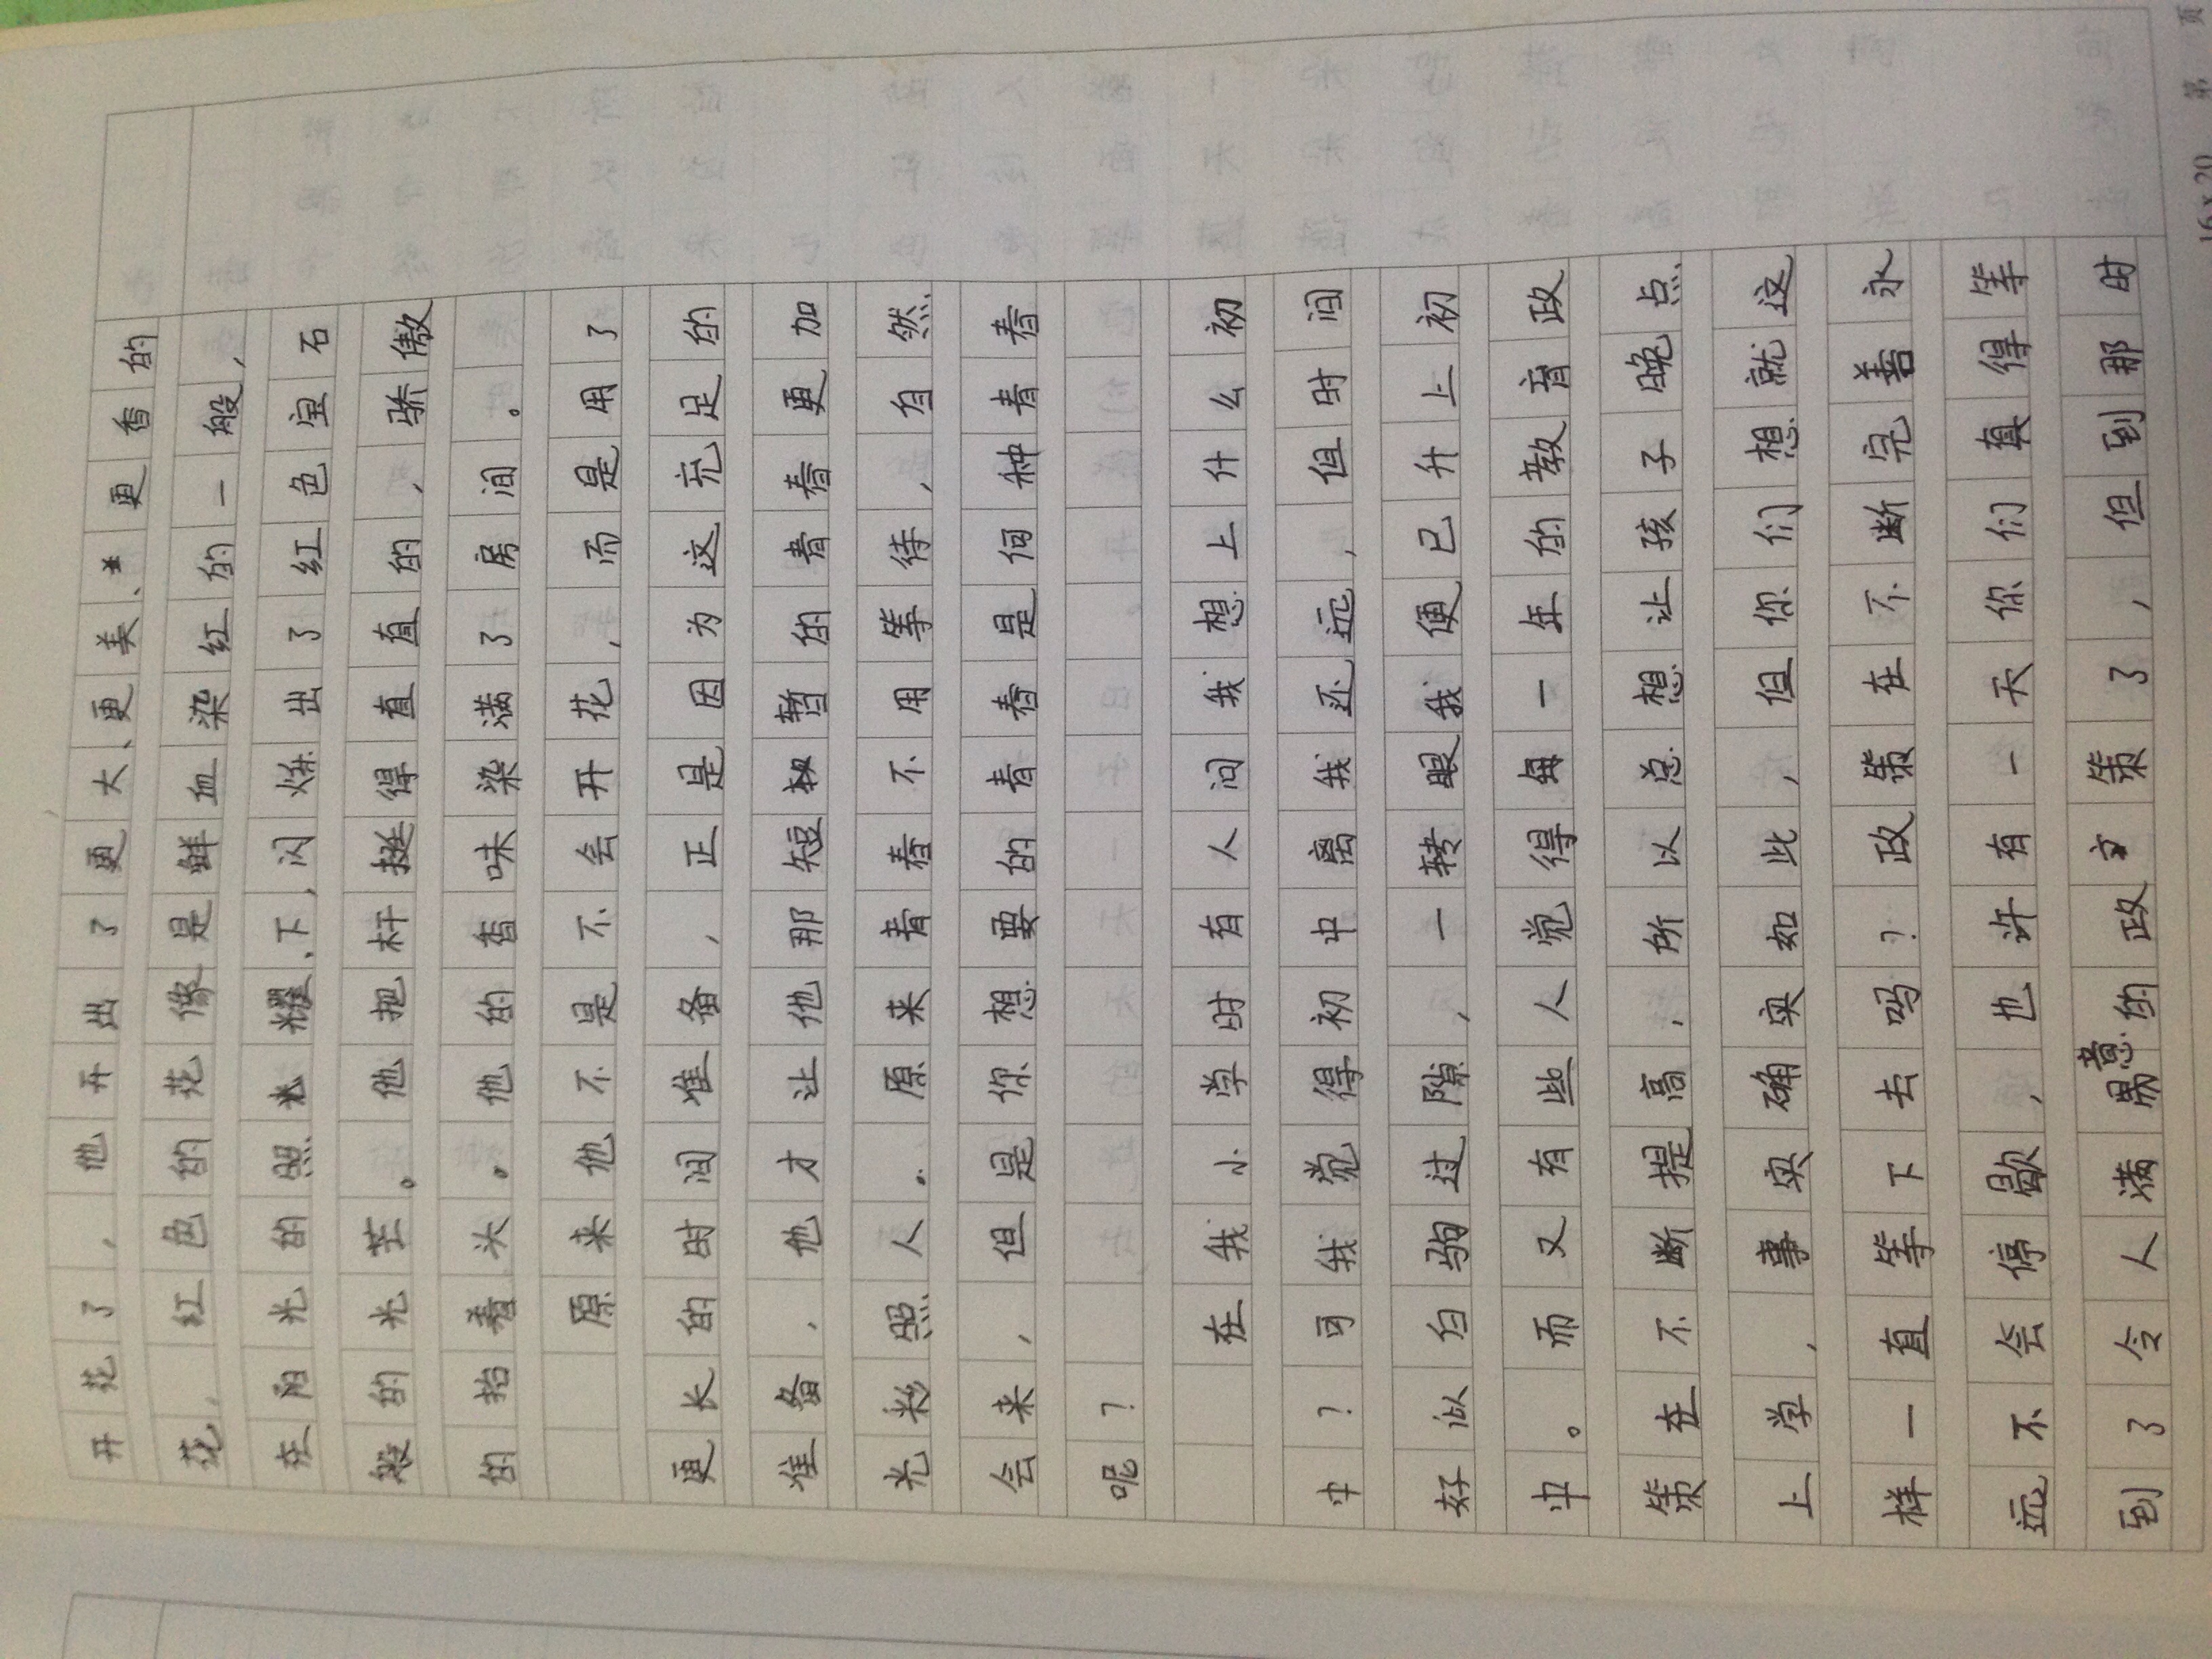 开花了，他开出了更大、更美、更香的
花，红色的花像是鲜血染红的一般，
在阳光的照耀下，闪烁出了红色宝石
般的光芒。他把杆挺得直直的，骄傲
的抬着头。他的香味染满了房间。
原来他不是不会开花，而是用了
更长的时间准备，正是因为这充足的
准备，他才让他那短暂的青春更加
光彩照人。原来青春不用等待，自然
会来，但是你想要的青春是何种青春
呢？
在我小学时有人问我想上什么初
中？可我觉得初中离我还远，但时间
好似白驹过隙，一转眼我便已升上初
中。而又有些人觉得每一年的教育政
策在不断提高，所以总想让孩子晚点
上学，事实确实如此，但你们想就这
样一直等下去吗？政策在不断完善永
远不会停歇，也许有一天你们真得等
到了令人满意的政策了，但到那时
16×20 第 页